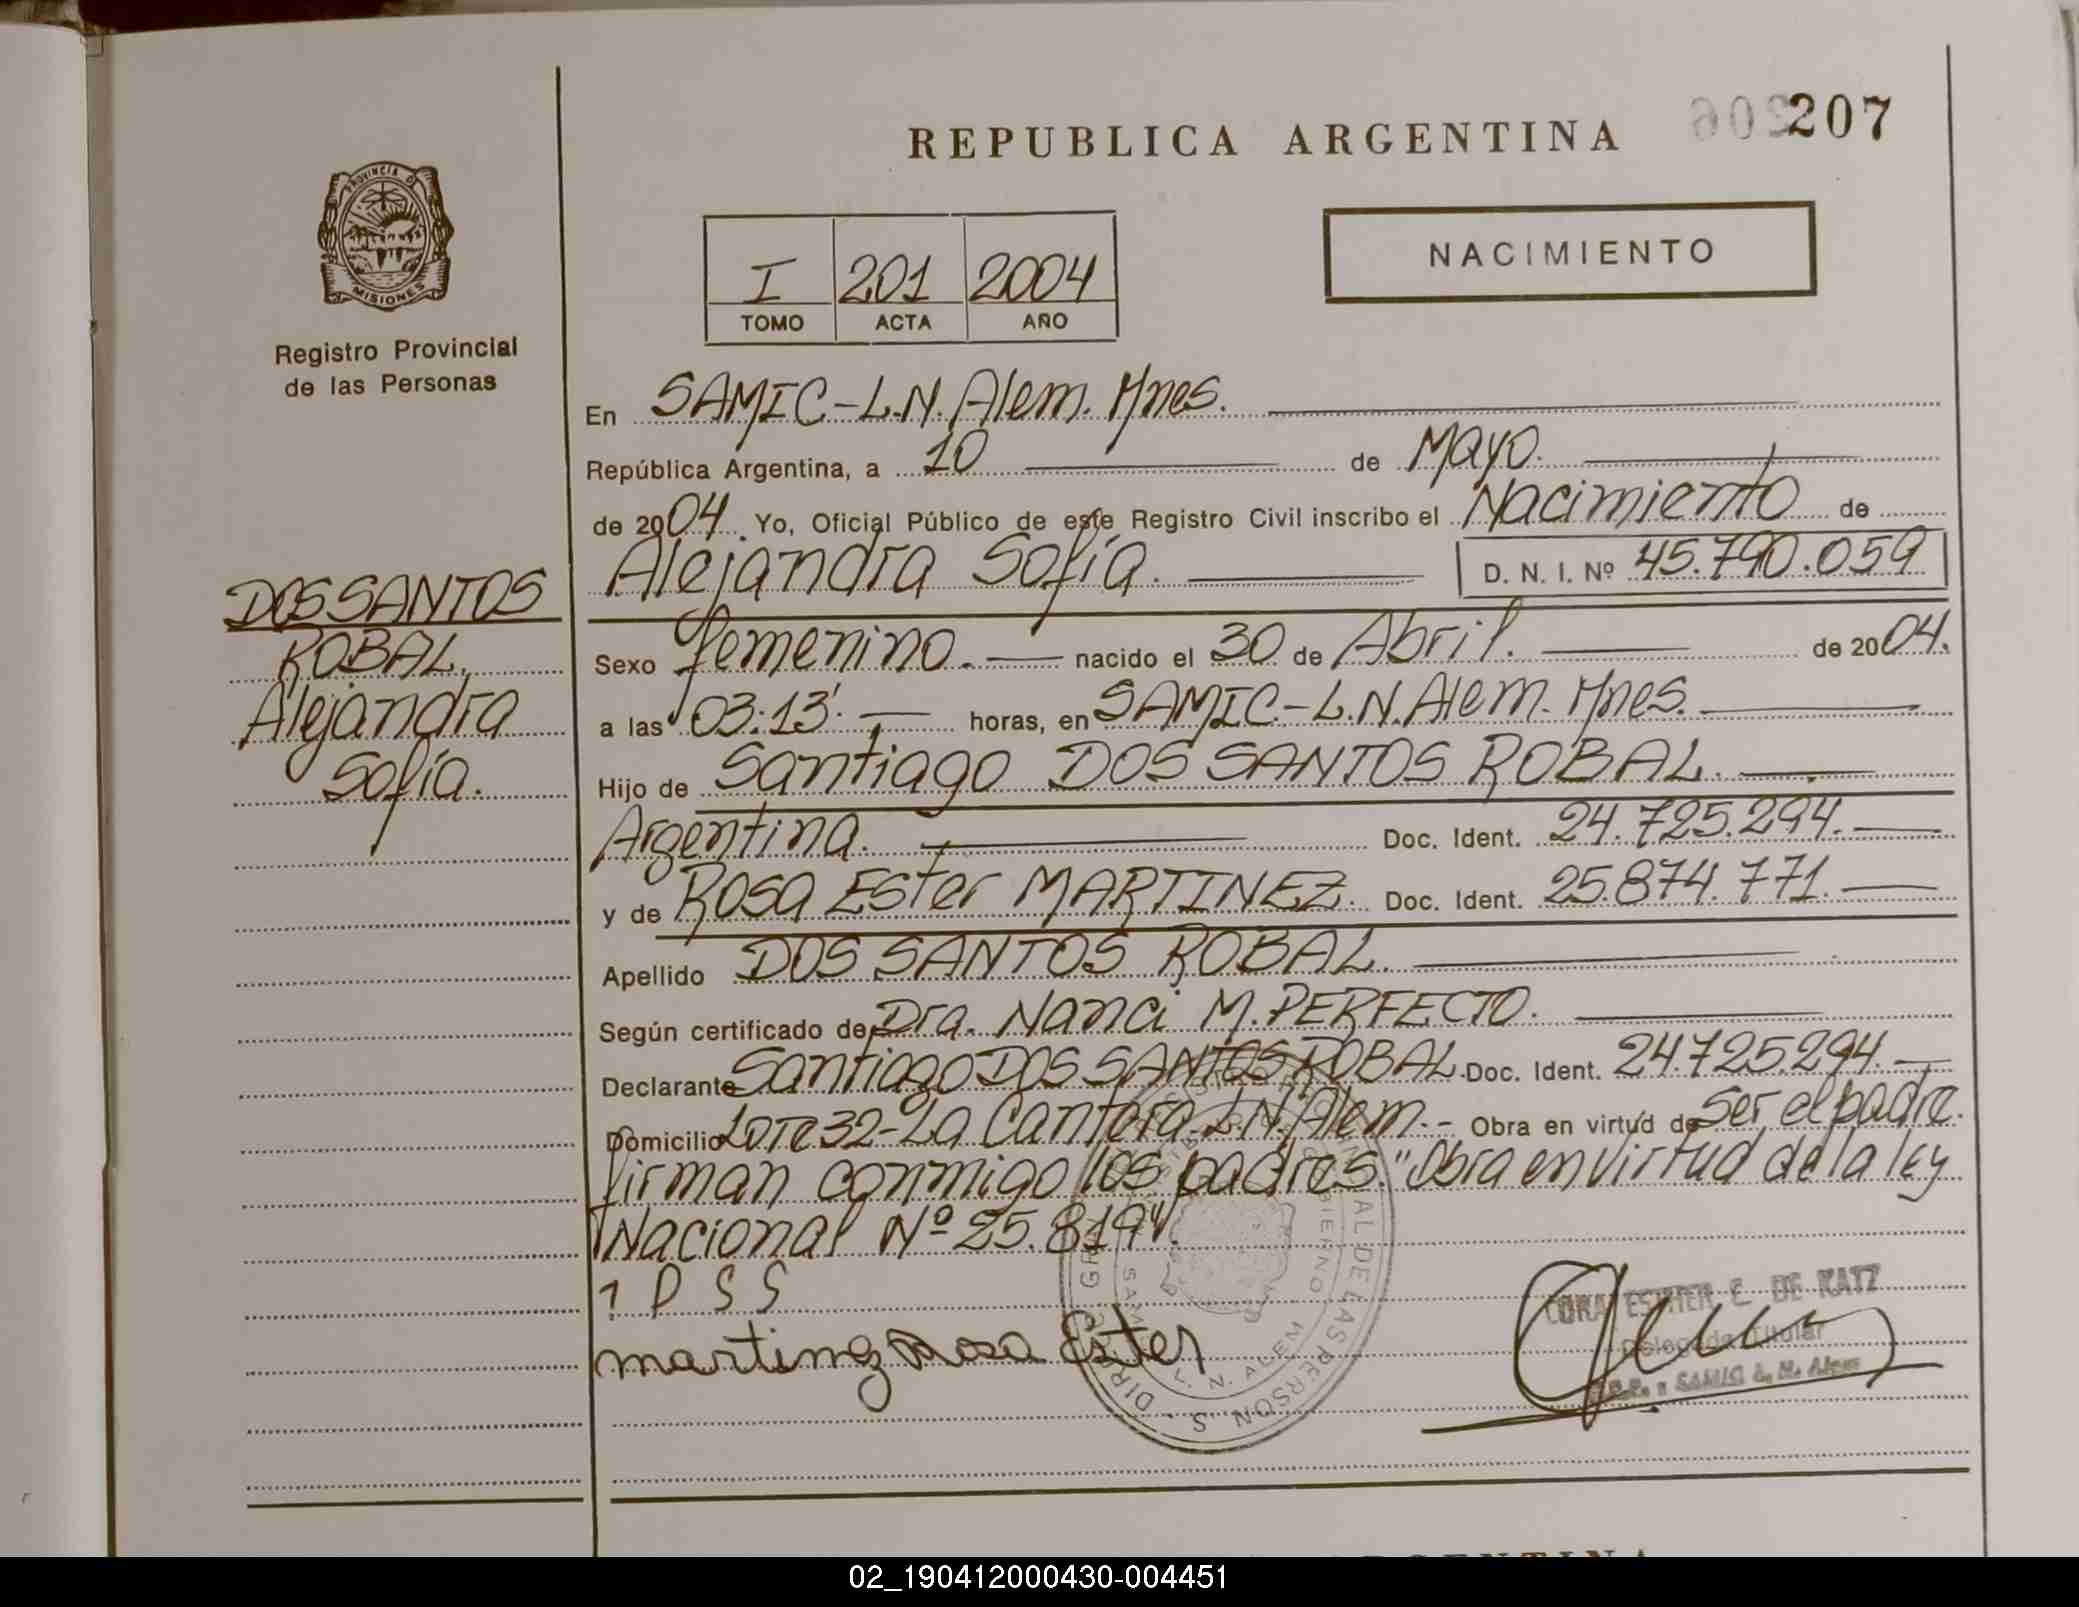 207
REPUBLICA ARGENTINA
PROVINCIA DE
MISIONES
Registro Provincial
de las Personas
NACIMIENTO
I 201 2004
TOMO ACTA AÑO
En SAMIC-L.N.Alem. Mnes.
República Argentina, a 10 de Mayo.
de 2004. Yo, Oficial Público de este Registro Civil inscribo el Nacimiento de
Alejandra Sofía. D. N. I. Nº 45.790.059
DOS SANTOS
ROBAL.
Alejandra
Sofía.
Sexo femenino. nacido el 30 de Abril. de 2004.
a las 03:13'. horas, en SAMIC.-L.N.Alem. Mnes.
Hijo de Santiago DOS SANTOS ROBAL.
Argentina. Doc. Ident. 24.725.294.
y de Rosa Ester MARTINEZ. Doc. Ident. 25.874.771.
Apellido DOS SANTOS ROBAL.
Según certificado de Dra. Nanci M. PERFECTO.
Declarante Santiago DOS SANTOS ROBAL. Doc. Ident. 24.725.294.
Domicilio Lote 32-La Cantera. L.N. Alem.- Obra en virtud de Ser, el padre.
firman conmigo los padres. "Obra en virtud de la ley
Nacional Nº 25.819".
martinez Rosa Ester
L. N. ALEM
ESTHER E. DE KATZ
Delegada Titular
SAMIC L. N. Alem
02_190412000430-004451